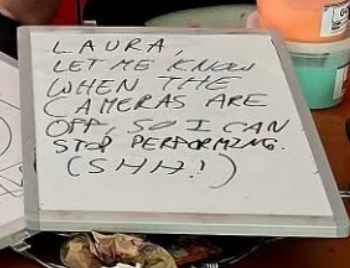 LAURA,
LET ME KNOW
WHEN THE
CAMERAS ARE
OFF, SO I CAN
STOP PERFORMING.
(SHH!)